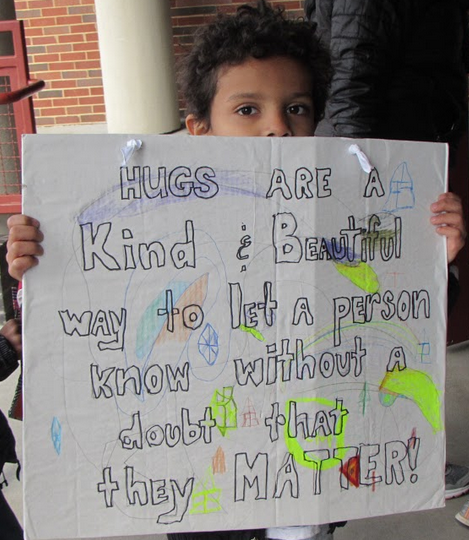 HUGS ARE A
Kind & BEAUTIFUL
way to let A person
know without a
doubt that
they MATTER!